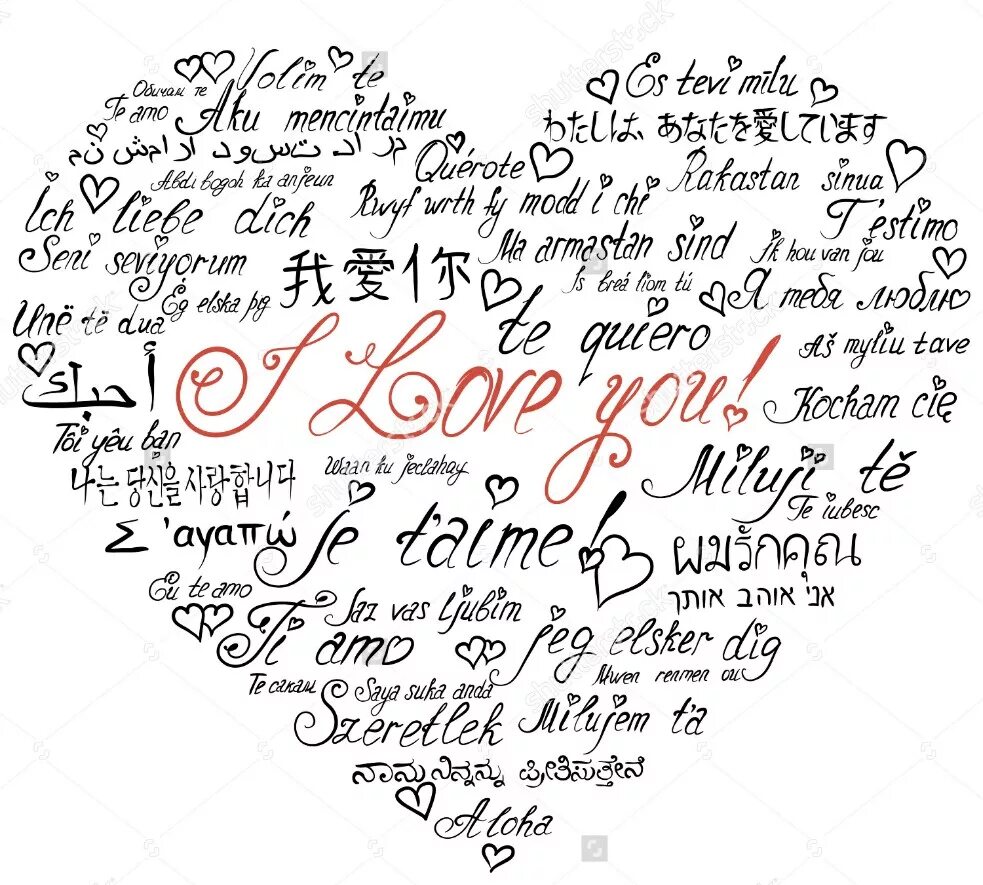 Volim te
Es tevi mīlu
Обичам те
Te amo
Aku mencintaimu
わたしは、あなたを愛しています
ن م ش ا م ر ا د و س ت د ر ا د
Quérote
Rakastan sinua
Abdi bogoh ka anjeun
Ich liebe dich
Rwyf wrth fy modd i chi
T'estimo
Seni seviyorum
我愛你
Ma armastan sind
Ik hou van jou
Is breá liom tú
Ég elska þig
Я тебя люблю
Unë të dua
te quiero
I Love you!
Aš myliu tave
أحبك
Kocham cię
Tôi yêu bạn
나는 당신을 사랑합니다
Waan ku jeclahay
Miluji tě
Te iubesc
Σ 'αγαπώ
je t'aime!
ผมรักคุณ
Eu te amo
אני אוהב אותך
Jaz vas ljubim
Ti amo
jeg elsker dig
Mwen renmen ou
Те сакам
Saya suka anda
Szeretlek
Milujem ťa
ನಾನು ನಿನ್ನನ್ನು ಪ್ರೀತಿಸುತ್ತೇನೆ
Aloha
shutterstock